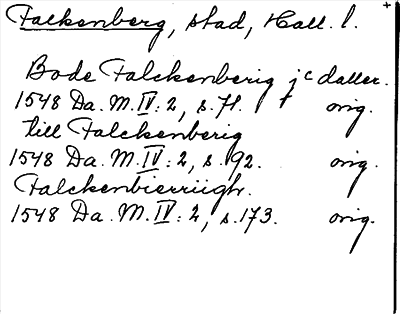 Falkenberg, stad, Hall. l. +
Bode Falckenberig jᶜ daller.
1548 Da. M. IV: 2, s. 71. orig.
till Falckenberig
1548 Da. M. IV: 2, s. 92. orig.
Falckenbierriigh.
1548 Da. M. IV: 2, s. 173. orig.